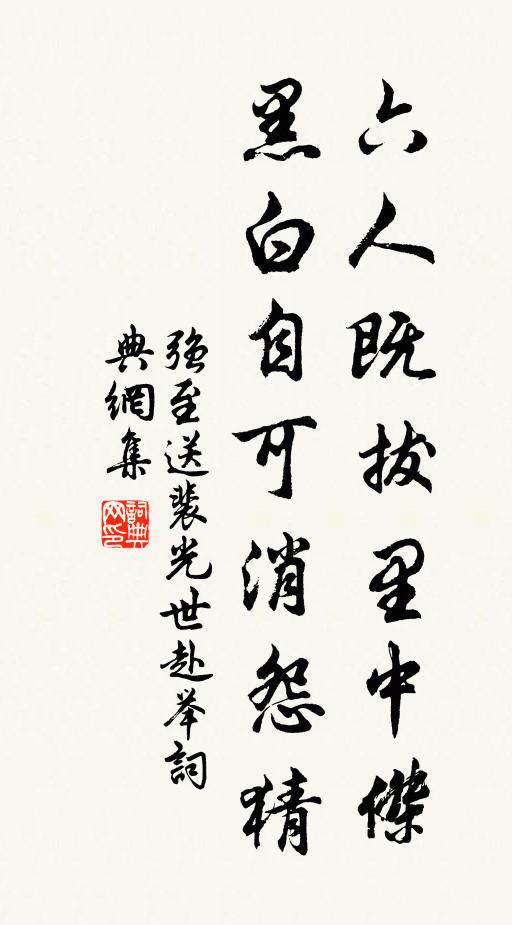 六人既拔里中傑
黑白自可消怨猜
强至送裴光世赴举詞
典網集
詞典网印